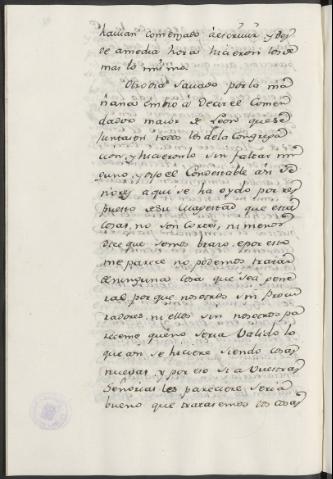 hauian comenzado à escreuir, y des
de a media hora hicieron los de
mas lo mismo.
Otro dia Sauado por la ma
ñana embio à Decir el Comen
dador maior de Leon que se
juntasen todos los de la Congrega
cion, y hicieronlo sin faltar nin
guno, y dijo el Condestable asi Se
ñores aqui se ha oydo por res
puesto de Su Magestad que estas
cosas, no son Cortes, ni menos
dice que somos brazo, è por esto
me parece no podemos tratar
de ninguna cosa que sea gene
ral, porque nosotros sin Procu
radores, ni ellos sin nosotros pa
receme que no seria Valido lo
que asi se hiciere siendo cosas
nuebas, y por eso si a Vuestras
Señorias les pareciere seria
bueno que tratasemos las cosas